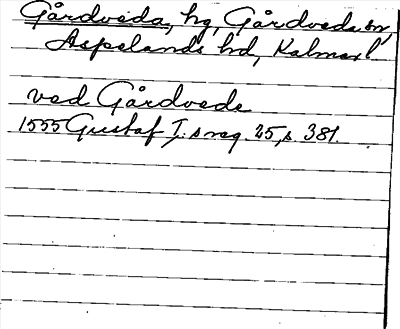 Gårdveda, hg, Gårdveda sn,
Aspelands hd, Kalmar l
ved Gårdvede
1555 Gustaf I:s reg. 25, s. 381.